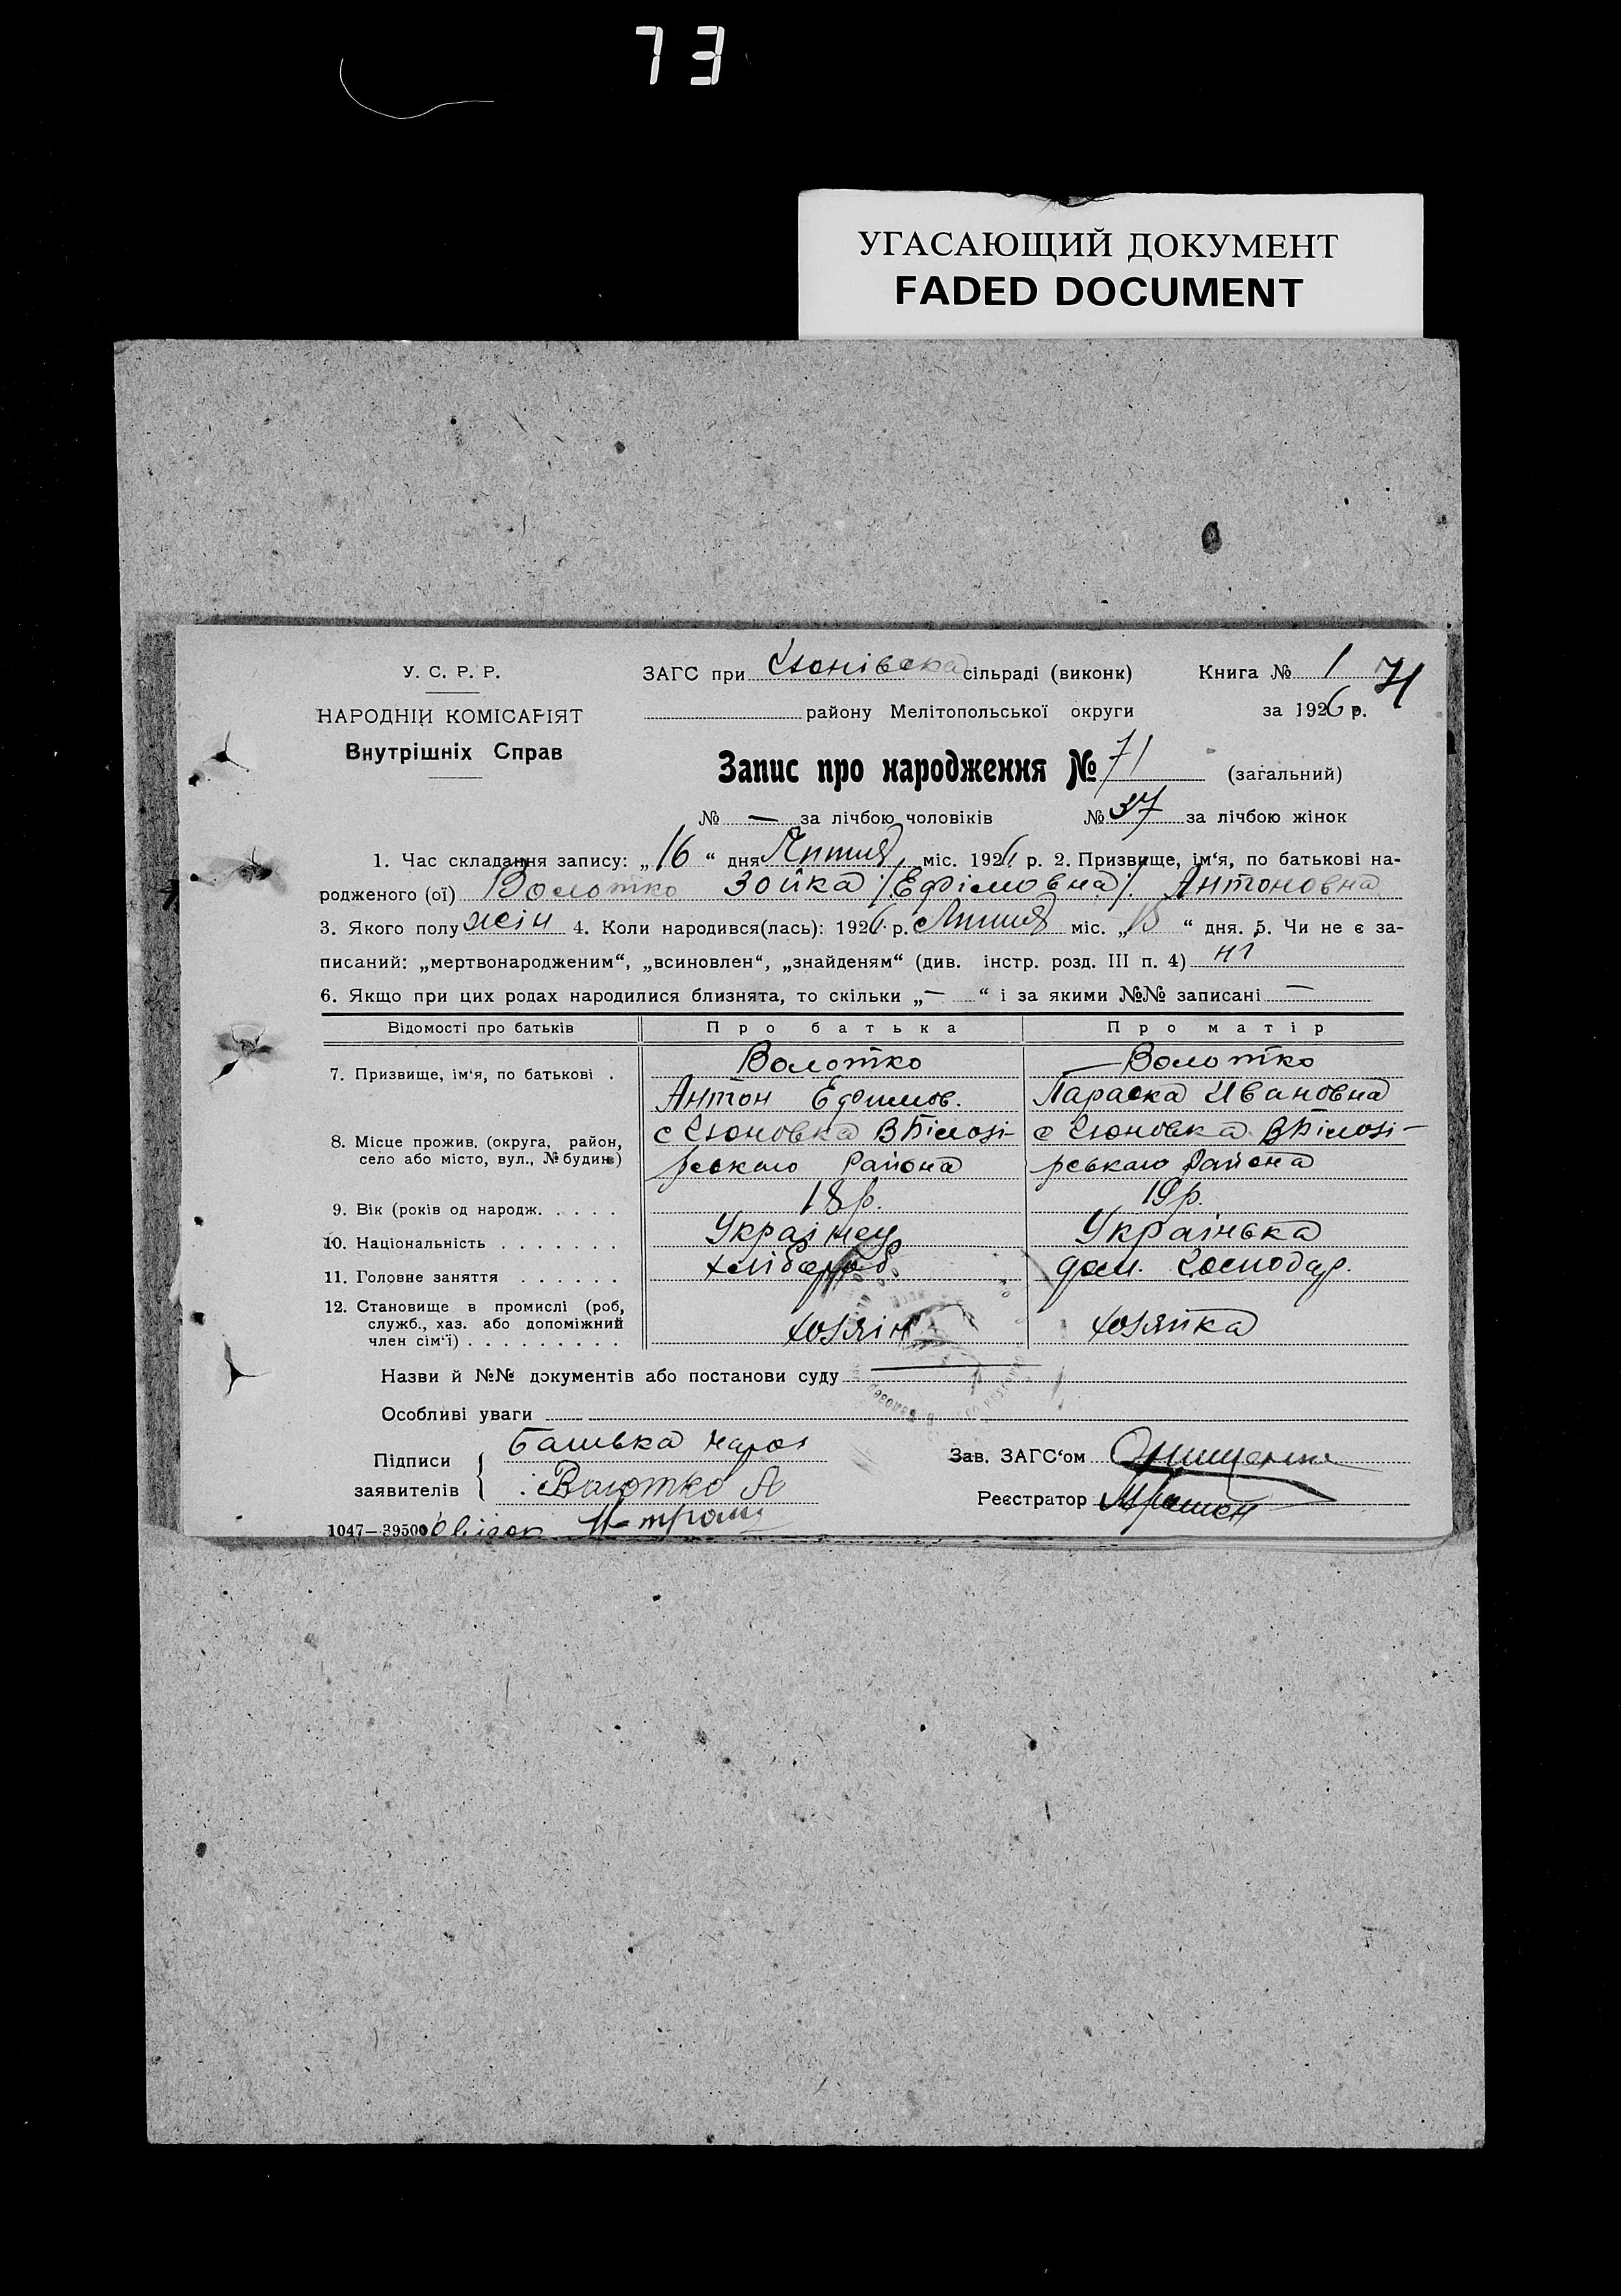 73
УГАСАЮЩИЙ ДОКУМЕНТ
FADED DOCUMENT
У. С. Р. Р.
НАРОДНІЙ КОМІСАРІЯТ
Внутрішніх Справ
ЗАГС при сільраді (виконк)
району Мелітопольської округи
Книга № 1 71
за 1926 р.
Запис про народження № 71 (загальний)
№ — за лічбою чоловіків № 37 за лічбою жінок
1. Час складання запису: „16“ дня Липня міс. 1926 р. 2. Призвище, ім‘я, по батькові на-
родженого (ої) Волотко Зойка /Ефімовна/. Антоновна
3. Якого полу жін 4. Коли народився(лась): 1926 р. Липня міс. „ “ дня. 5. Чи не є за-
писаний: „мертвонародженим“, „всиновлен“, „знайденям“ (див. інстр. розд. III п. 4) ні
6. Якщо при цих родах народилися близнята, то скільки „—“ і за якими №№ записані —
Відомості про батьків Про батька Про матір
7. Призвище, ім‘я, по батькові . Волотко Волотко
Антон Ефимов. Параска Ивановна
8. Місце прожив. (округа, район, с В Білозі- с В Білозі-
село або місто, вул., № будин.) рськаго Района рськаго Района
9. Вік (років од народж. . . . . 18 р. 19 р.
10. Національність . . . . . . . Українец Українька
11. Головне заняття . . . . . . хліборроб дом. Господар.
12. Становище в промислі (роб,
служб., хаз. або допоміжний
член сім‘ї) . . . . . . . . . хозяін хозяйка
Назви й №№ документів або постанови суду
Особливі уваги
Підписи
заявителів
Батька
Волотко А
Зав. ЗАГС‘ом Онищенко
Реєстратор
1047—39500